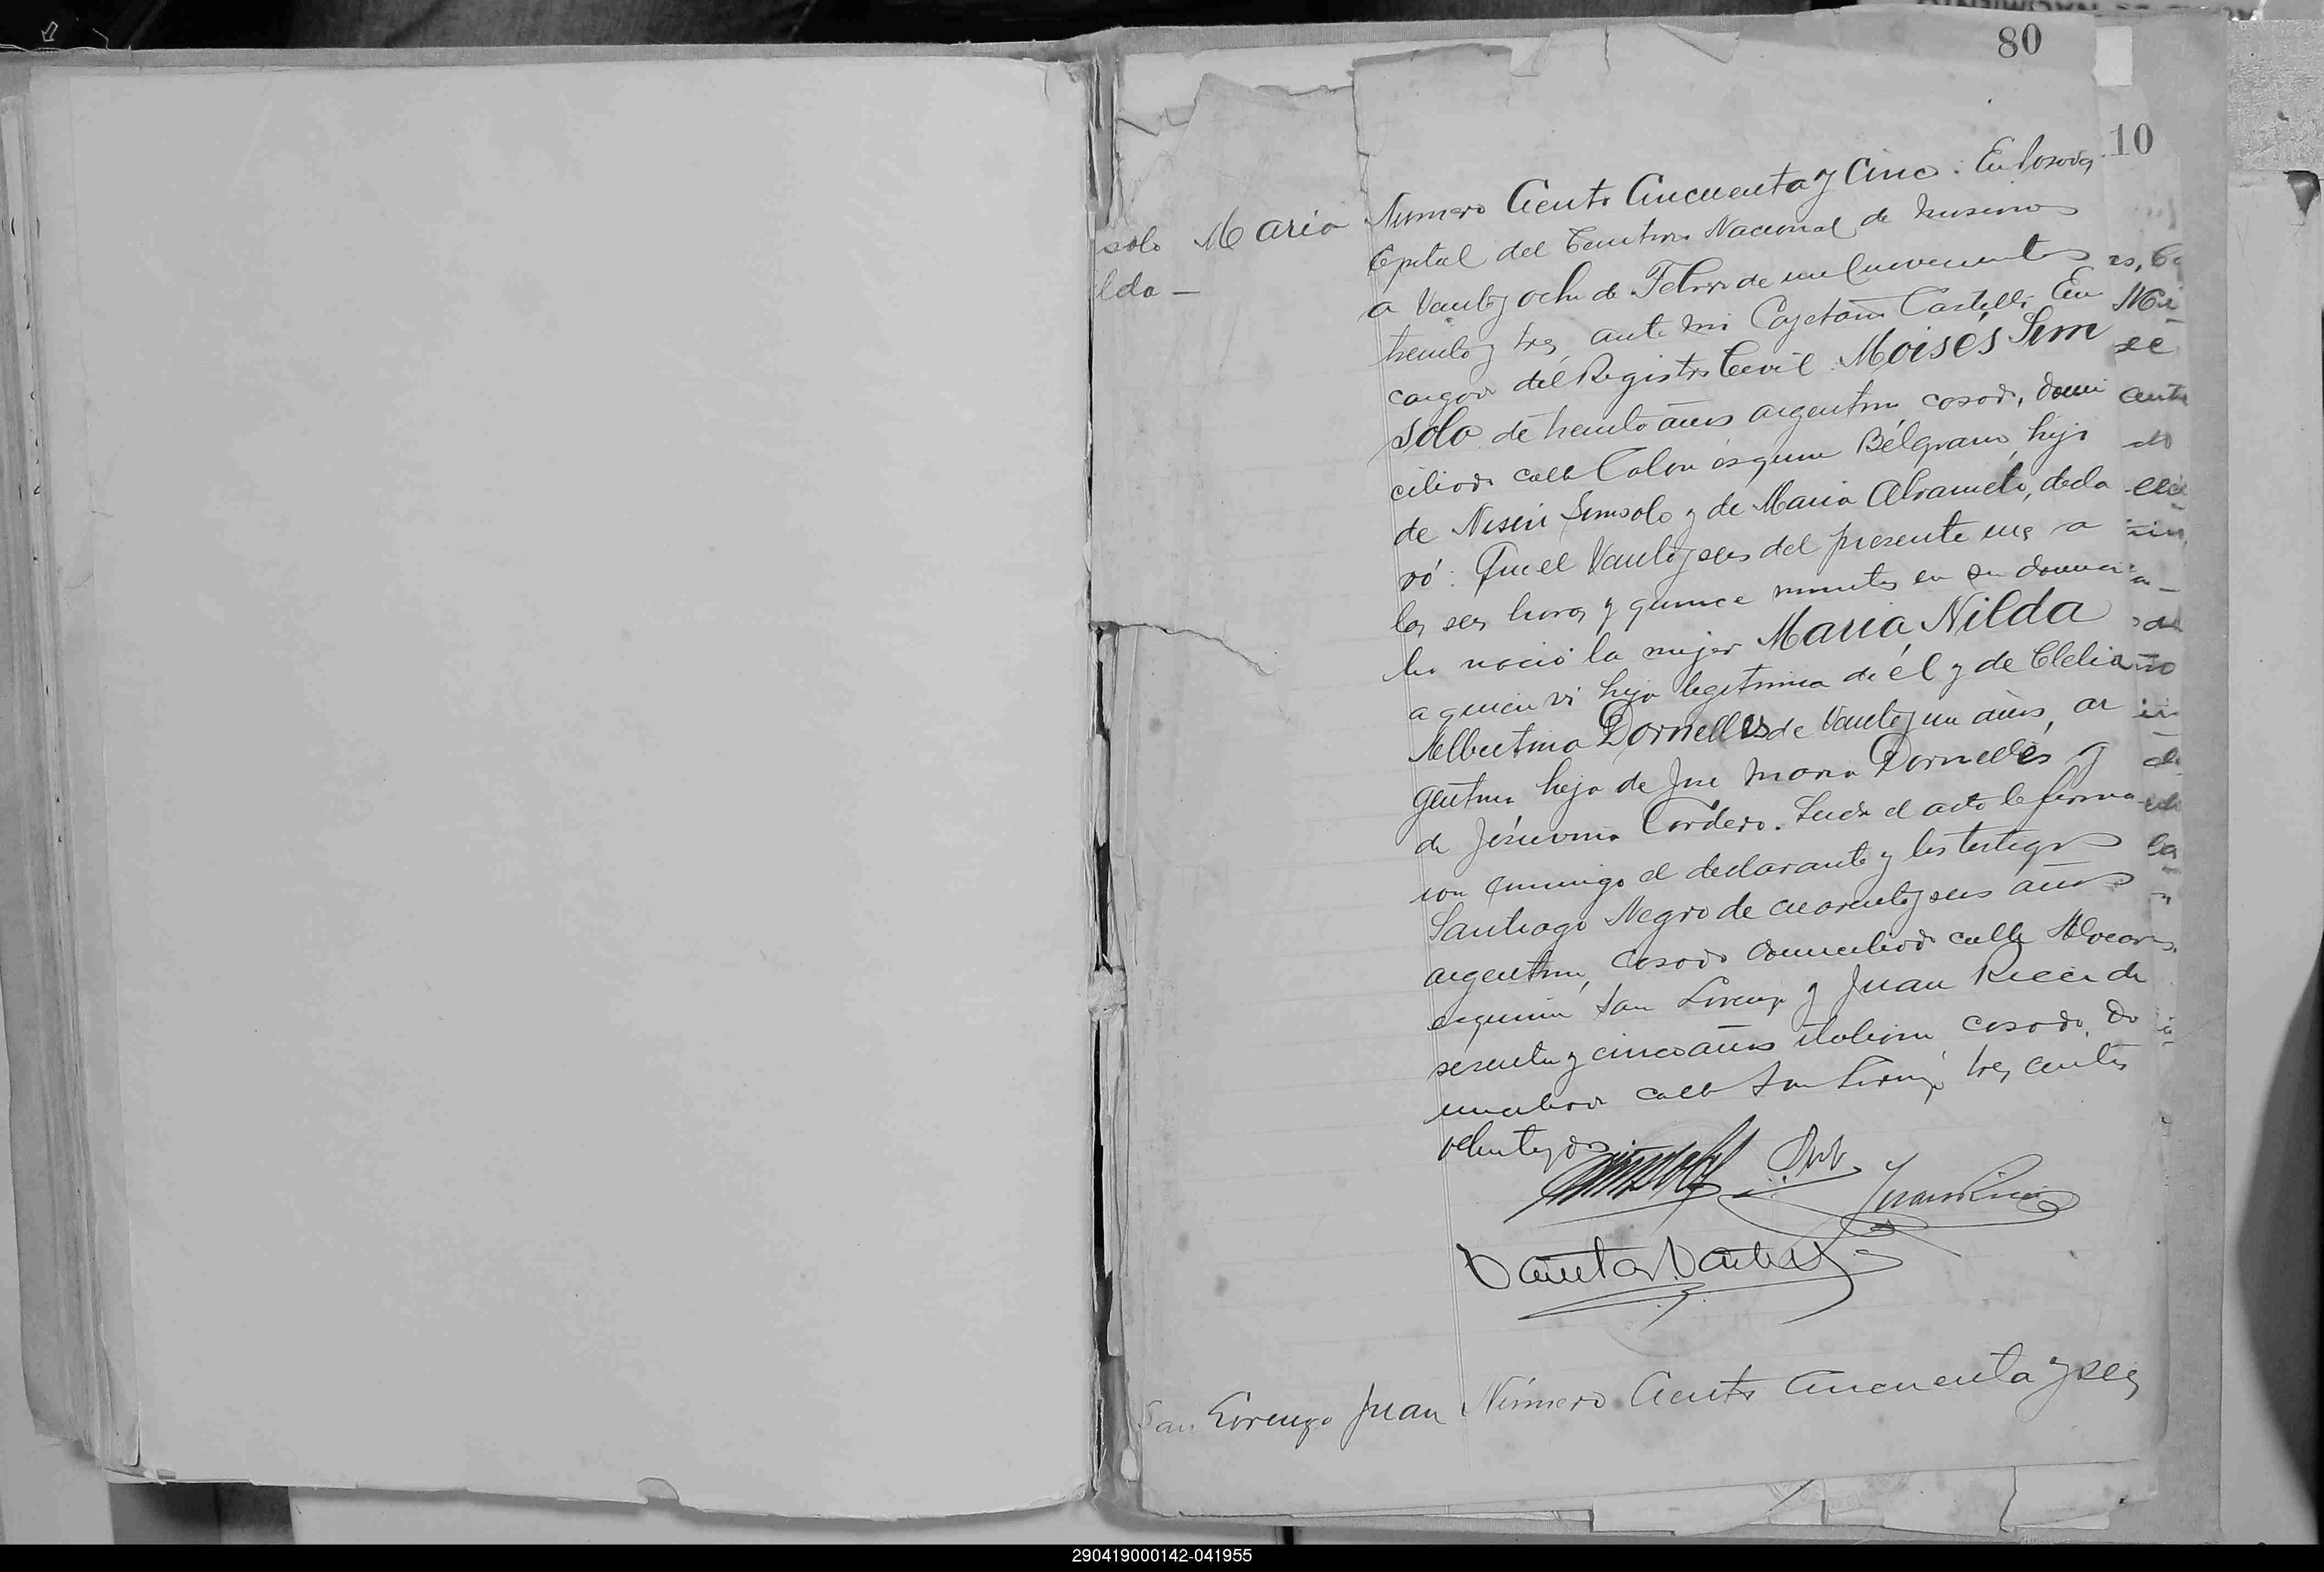 80
10
solo Maria
lda —
Número Ciento Cincuenta y Cinco. En Posadas
Capital del Territorio Nacional de Misiones
a veintiocho de Febrero de mil novecientos
treinta y tres, ante mi Cayetano Castelli En
cargado del Registro Civil Moisés Sim
solo de treinta años argentino casado, domi
ciliado calle Colon esquina Belgrano, hijo
de Nisin Simsolo y de Maria, decla
ró: Que el veintiseis del presente mes a
las seis horas y quince minutos en su domici
lio nació la mujer Maria Nilda
a quien vi hija legitima de él y de Clelia
Albertina Dornelles de veintiun años, ar
gentina hija de José Maria Dornelles y
de Jerónima Cordero. Leida el acta la firma
ron conmigo el declarante y los testigos
Santiago Negro de cuarenta y seis años
argentino, casado domiciliado calle
esquina San Lorenzo y Juan Ricci de
sesenta y cinco años italiano casado, do
miciliado calle San Lorenzo trescientos
Juan Ricci
San Lorenzo Juan Número Ciento Cincuenta y seis
290419000142-041955